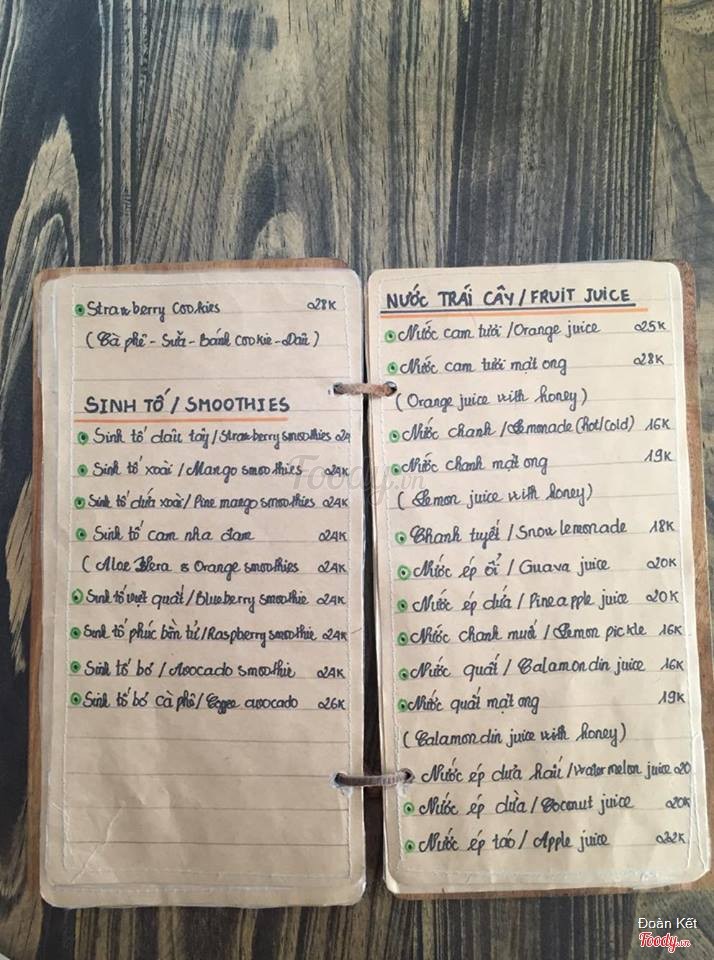 Strawberry Cookies 28K
(Cà phê - Sữa - Bánh cookie - Dâu)
SINH TỐ / SMOOTHIES
Sinh tố dâu tây / Strawberry smoothies 24
Sinh tố xoài / Mango smoothies 24K
Sinh tố dứa xoài / Pine mango smoothies 24K
Sinh tố cam nha đam 24K
(Aloe Vera & Orange smoothies 24K
Sinh tố việt quất / Blueberry smoothie 24K
Sinh tố phúc bồn tử / Raspberry smoothie 24K
Sinh tố bơ / Avocado smoothie 24K
Sinh tố bơ cà phê / Coffee avocado 26K
NƯỚC TRÁI CÂY / FRUIT JUICE
Nước cam tươi / Orange juice 25K
Nước cam tươi mật ong 28K
(Orange juice with honey)
Nước chanh / Lemonade (hot/cold) 16K
Nước chanh mật ong 19K
(Lemon juice with honey)
Chanh tuyết / Snow lemonade 18K
Nước ép ổi / Guava juice 20K
Nước ép dứa / Pineapple juice 20K
Nước chanh muối / Lemon pickle 16K
Nước quất / Calamondin juice 16K
Nước quất mật ong 19K
(Calamondin juice with honey)
Nước ép dưa hấu / Watermelon juice 20
Nước ép dừa / Coconut juice 20K
Nước ép táo / Apple juice 22K
Foody.vn
Đoàn Kết
Foody.vn